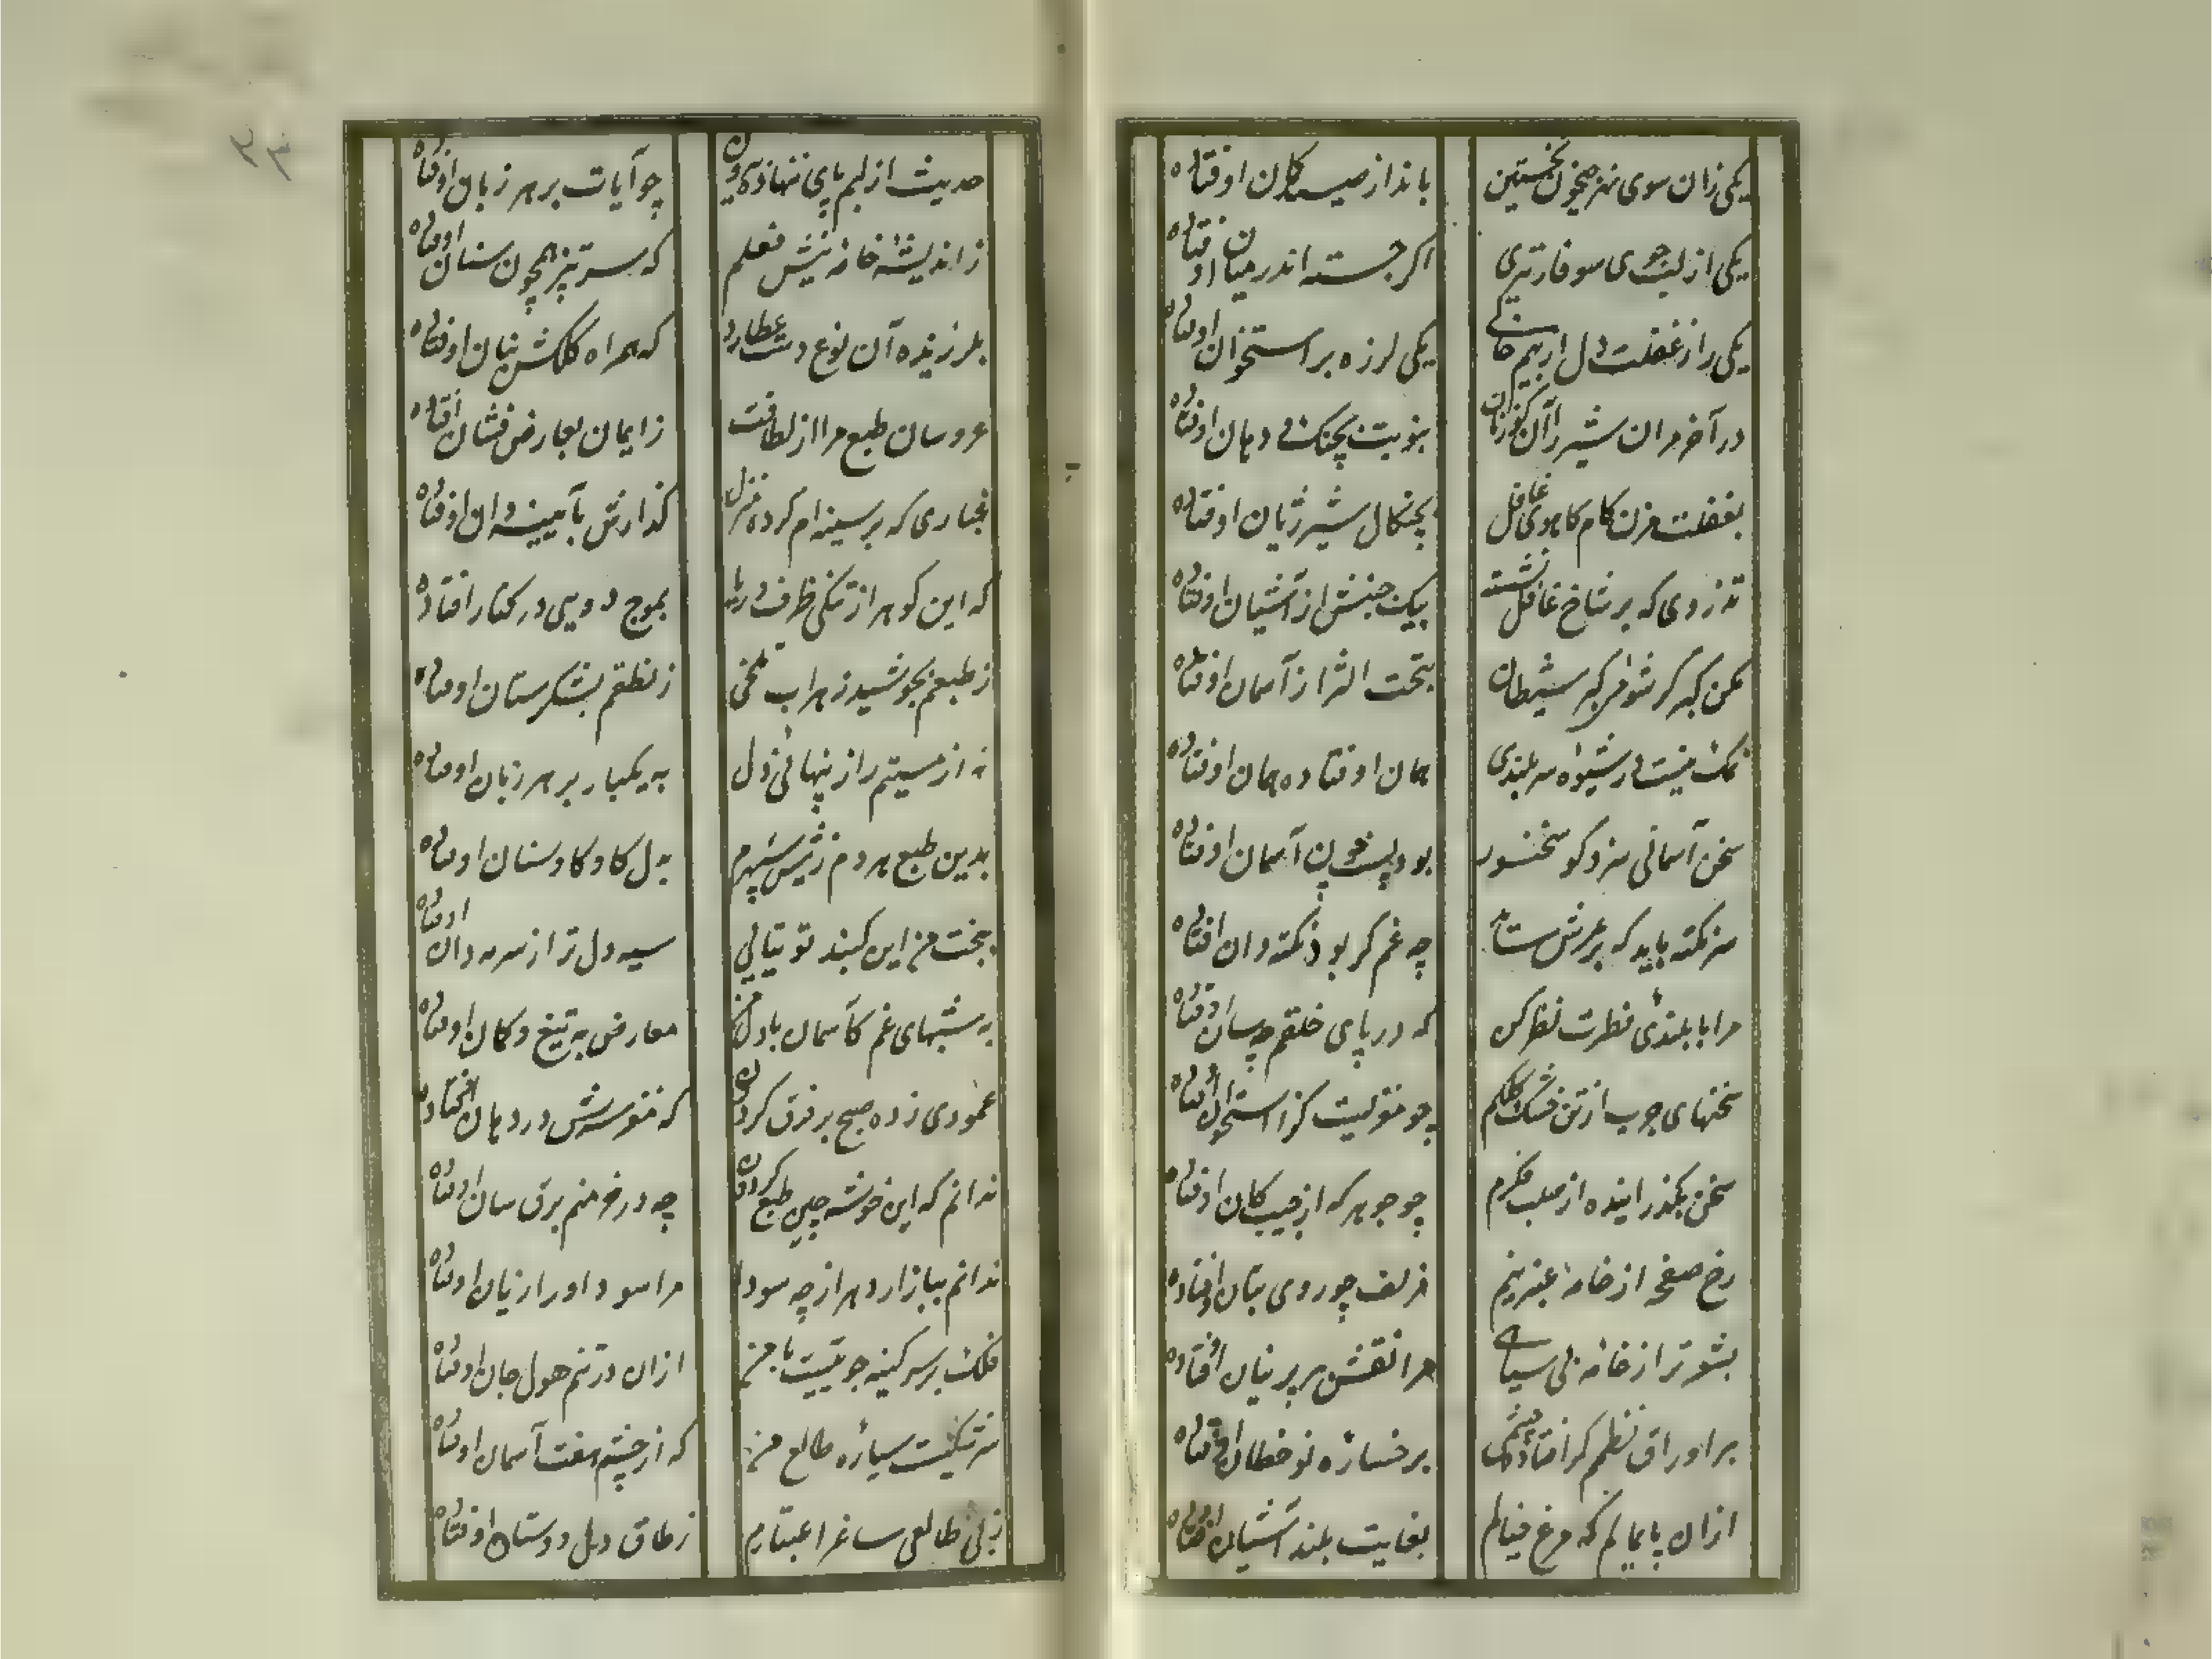 یکی زان سوی نهر جیحون نخستین
بانداز صید کان اوفتاده
یکی از لب جوی سوفار تیری
اگر جسته اندر میان اوفتاده
یکی را ز غفلت دل از بیم خالی
یکی لرزه بر استخوان اوفتاده
در آخر مر آن شیر را آن گوزنان
بنوبت بچنگ و دهان اوفتاده
بغفلت مزن کام کاهوی غافل
بچنکال شیر ژیان اوفتاده
تذروی که بر شاخ غافل نشسته
بیک جنبش از آشیان اوفتاده
مکن کبر گر شو
بتحت الثرا ز آسمان اوفتاده
همان اوفتاده همان اوفتاده
سخن آسمانی سزد کو سخنور
بود پست چون آسمان اوفتاده
سر نکته باید که بر عرش ساید
چه غم کر بود نکته دان افتاده
مرا با بلندی فطرت نظر کن
که در پای خلقم چسان اوفتاده
سخنهای چرب از تن خشک کلکم
چو مغزیست کز استخوان افتاده
سخن بگذراینده از صلب فکرم
چو جوهر که از جیب کان اوفتاده
رخ صفحه از خامهٔ عنبرینم
مزلف چو روی بتان اوفتاده
بشعر تر از خامه بی سیاهی
مرا نقش بر پرنیان افتاده
بر اوراق نظمم کر افتاد چشمی
بر خسارهٔ نو خطان اوفتاده
ازان پایمالم که مرغ خیالم
بغایت بلند آشیان افتاده
حدیث از لبم پای ننهاده بیرون
چو آیات بر هر زبان اوفتاده
ز اندیشه خامه نیش فعلم
که سر تیز همچون سنان اوفتاده
بلرزیده آن نوع دست عطارد
که همراه کلکش بنان اوفتاده
عروسان طبع مرا از لطافت
ز ایمان بعارض فشان افتاده
غباری که بر سینه ام کرده منزل
گذارش بآیینه دان اوفتاده
که این گوهر از تنگی ظرف دریا
بموج دویی در کنار افتاده
ز طبعم بجوشید زهراب تلخی
ز نطقم بشکرستان اوفتاده
نه از مستیم راز پنهانی دل
به یکبار بر هر زبان اوفتاده
بدین طبع هر دم ز نیش سپهرم
به دل کاو کاو سنان اوفتاده
ببخت من این گنبد توتیایی
سیه دل تر از سرمه دان اوفتاده
به شبهای غم کآسمان با دل من
معارض به تیغ و کمان اوفتاده
عمودی زده صبح بر فرق گردون
که مغز سرش در دهان افتاده
ندانم که این خوشه چین طبع گردون
چه در خرمنم برق سان اوفتاده
ندانم ببازار دهر از چه سودا
مرا سود او را زیان اوفتاده
فلک بر سر کینه جوییست با من
ازان در تنم هول جان اوفتاده
سرشکیست سیارهٔ طالع من
که از چشم هفت آسمان اوفتاده
ز بی طالعی ساغر اعتبارم
ز طاق دل دوستان اوفتاده
۳۳